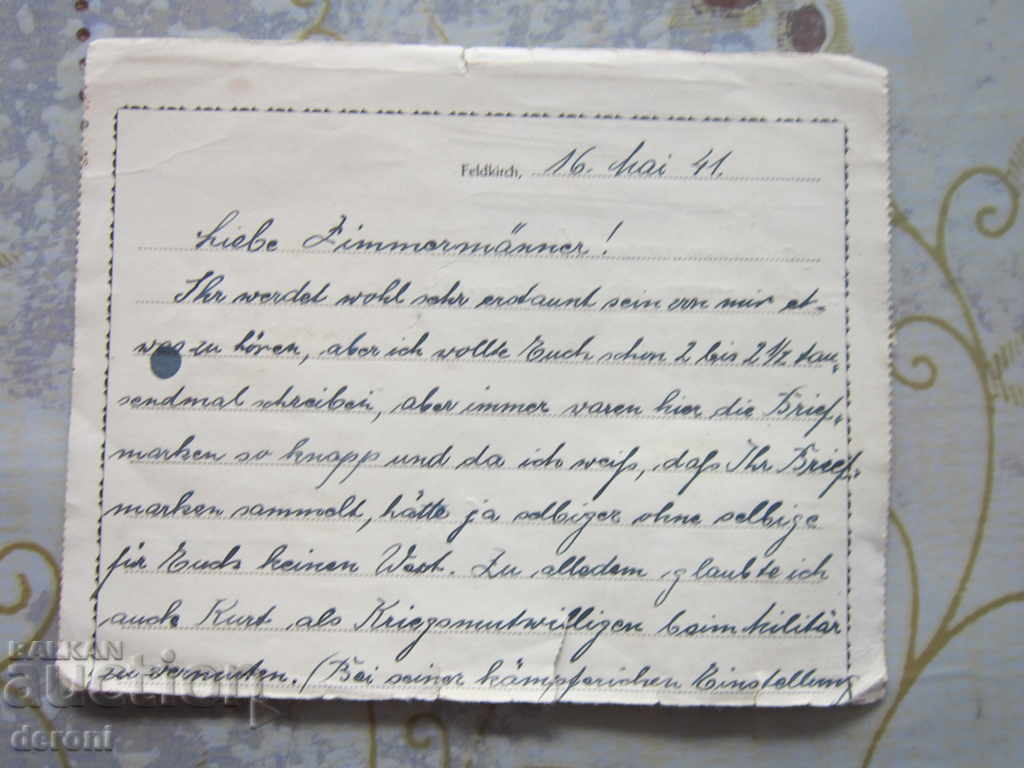 Feldkirch, 16. Mai 41.
Liebe Zimmermänner!
Ihr werdet wohl sehr erstaunt sein von mir et-
was zu hören, aber ich wollte Euch schon 2 bis 2 1/2 tau-
sendmal schreiben, aber immer waren hier die Brief-
marken so knapp und da ich weiß, daß Ihr Brief-
marken sammelt, hätte ja selbiger ohne selbige
für Euch keinen Wert. Zu alledem glaubte ich
auch Kurt als Kriegsmutwilligen beim Militär
zu vermuten. (Bei seiner kämpferichen Einstellung
BALKAN
auction
deroni